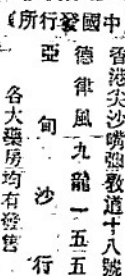 中國發行所《
香港尖沙嘴彌敦道十八號
德律風九龍一五五
亞甸沙行
各大藥房均有發售